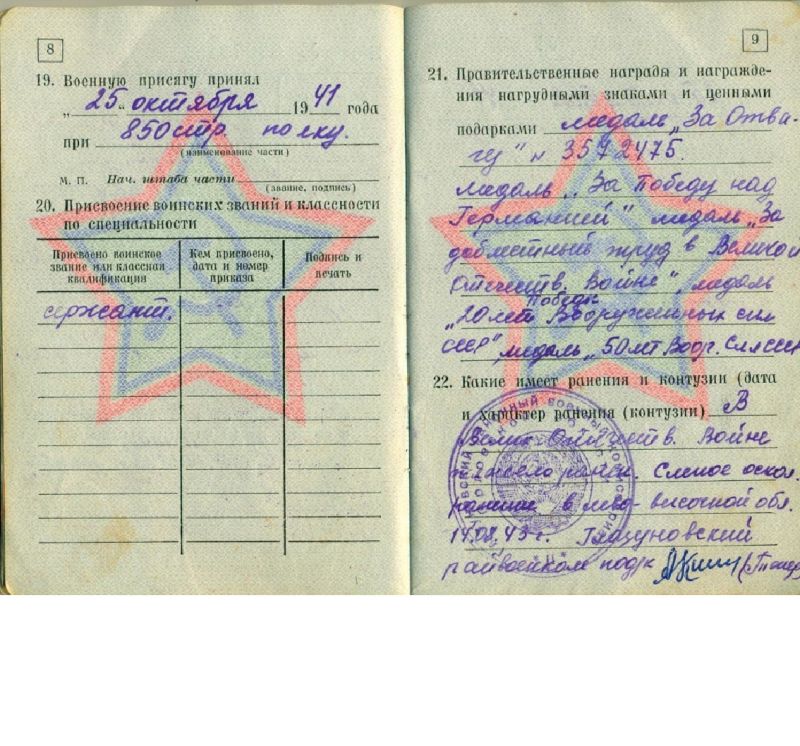 8
19. Военную присягу принял
„ 25 " октября 1941 года
при 850 стр. полку.
(наименование части)
М. П. Нач. штаба части
(звание, подпись)
20. Присвоение воинских званий и классности
по специальности
Присвоено воинское звание или классная квалификации
Кем присвоено, дата и номер приказа
Подпись и печать
сержант.
9
21. Правительственные награды и награжде-
ния нагрудными знаками и ценными
подарками медаль „За Отва-
гу" № 3572475.
медаль „За Победу над
Германией" медаль „За
доблестный труд в Великой
Отечеств. Войне", медаль
Победы
„20 лет Вооруженных сил
СССР" медаль „50 лет Воор. Сил СССР
22. Какие имеет ранения и контузии (дата
и характер ранения (контузии) В
Велик. Отечеств. Войне
тяжело ранен. Слепое оскол.
ранение в лево-височной обл.
14.08.43 г. Глазуновский
райвоенком подп/к